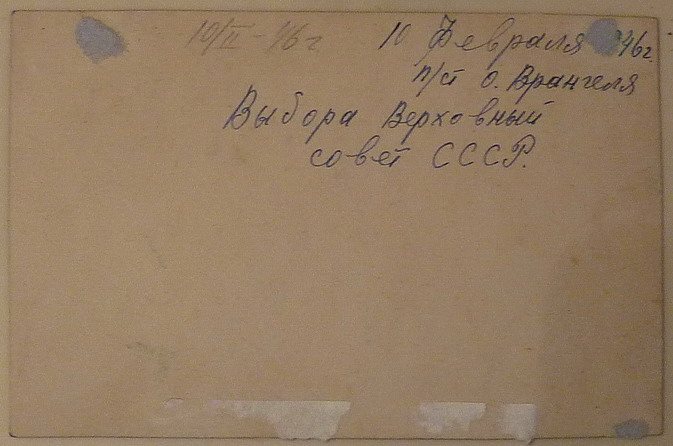 10/II - 46 г.
10 Февраля 46 г.
п/ст о. Врангеля
Выбора Верховный
совет СССР.